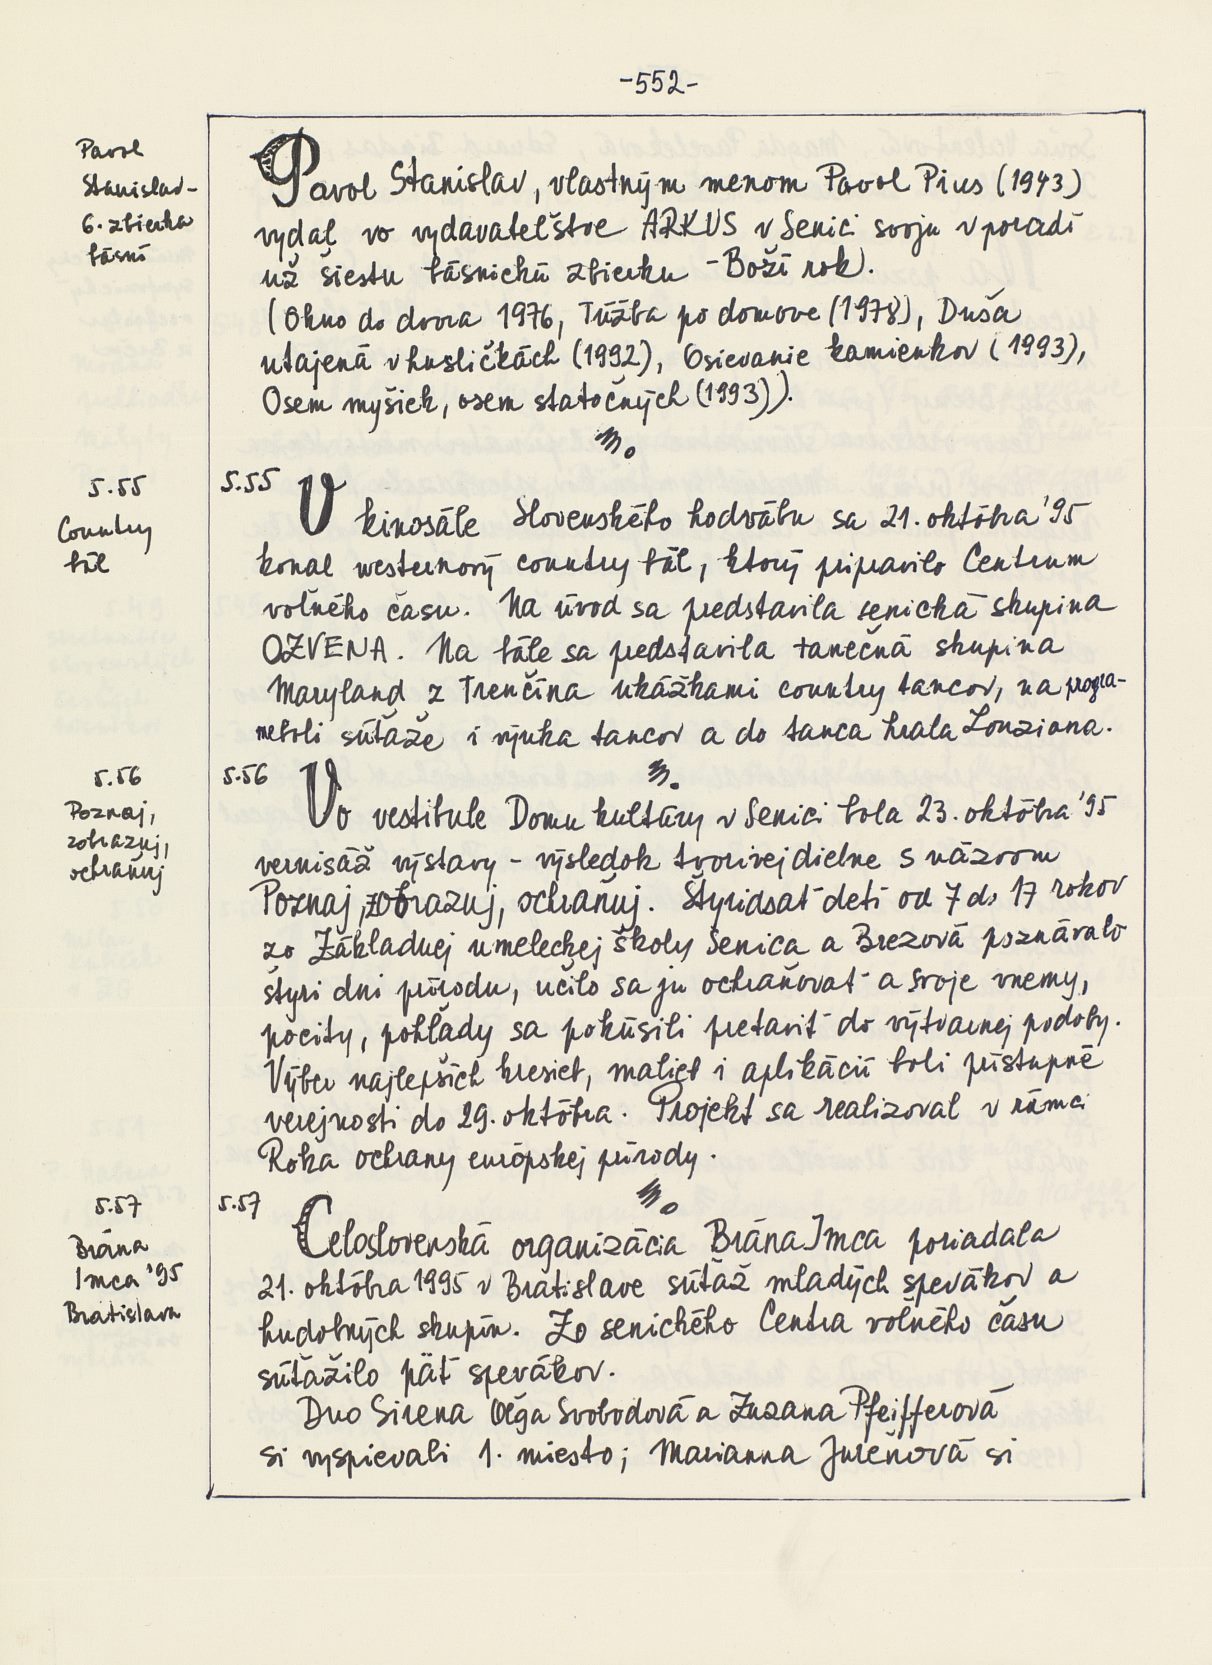 -552-
Pavol
Stanislav-
6. zbierka
básní
Pavol Stanislav, vlastným menom Pavol Pius (1943)
vydal vo vydavateľštve ARKUS v Senici svoju v poradí
už šiestu básnickú zbierku - Boží rok.
(Okno do dvora 1976, Túžba po domove (1978), Duša
utajená v husličkách (1992), Osievanie kamienkov (1993),
Osem myšiek, osem statočných (1993)).
5.55
Country
bál
5.55 V kinosále Slovenského hodvábu sa 21. októbra '95
konal westernový country bál, ktorý pripravilo Centrum
voľného času. Na úvod sa predstavila senická skupina
OZVENA. Na bále sa predstavila tanečná skupina
Maryland z Trenčína ukážkami country tancov, na progra-
me boli súťaže i výuka tancov a do tanca hrala Louziana.
5.56
Poznaj,
zobrazuj,
ochraňuj
5.56 Vo vestibule Domu kultúry v Senici bola 23. októbra '95
vernisáž výstavy - výsledok tvorivej dielne s názvom
Poznaj, zobrazuj, ochraňuj. Štyridsať detí od 7 do 17 rokov
zo Základnej umeleckej školy Senica a Brezová poznávalo
štyri dni prírodu, učilo sa ju ochraňovať a svoje vnemy,
pocity, pohľady sa pokúsili pretaviť do výtvarnej podoby.
Výber najlepších kresieb, malieb i aplikácií boli prístupné
verejnosti do 29. októbra. Projekt sa realizoval v rámci
Roka ochrany európskej prírody.
5.57
Brána
Imca '95
Bratislava
5.57 Celoslovenská organizácia Brána Imca poriadala
21. októbra 1995 v Bratislave súťaž mladých spevákov a
hudobných skupín. Zo senického Centra voľného času
súťažilo päť spevákov.
Duo Sirena Oľga Svobodová a Zuzana Pfeifferová
si vyspievali 1. miesto; Marianna Jureňová si